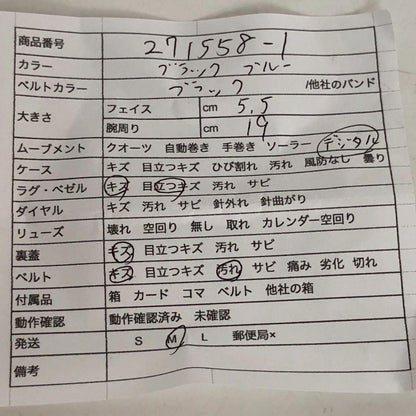 商品番号 271558-1
カラー ブラック ブルー
ベルトカラー ブラック /他社のバンド
大きさ フェイス cm 5,5
腕周り cm 19
ムーブメント クオーツ 自動巻き 手巻き ソーラー デジタル
ケース キズ 目立つキズ ひび割れ 汚れ 風防なし 曇り
ラグ・ベゼル キズ 目立つキズ 汚れ サビ
ダイヤル キズ 汚れ サビ 針外れ 針曲がり
リューズ 壊れ 空回り 無し 取れ カレンダー空回り
裏蓋 キズ 目立つキズ 汚れ サビ
ベルト キズ 目立つキズ 汚れ サビ 痛み 劣化 切れ
付属品 箱 カード コマ ベルト 他社の箱
動作確認 動作確認済み 未確認
発送 S M L 郵便局×
備考